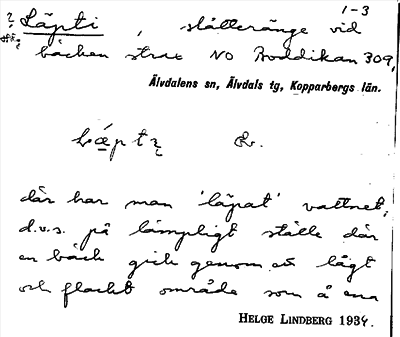 1-3
? Läpti, slåtteränge vid
bäcken strax NO Boddikan 309,
Älvdalens sn, Älvdals tg, Kopparbergs län.
där har man 'läpat' vattnet,
d.v.s. på lämpligt ställe där
en bäck gick genom ett lågt
och flackt område som å ena
HELGE LINDBERG 1934.